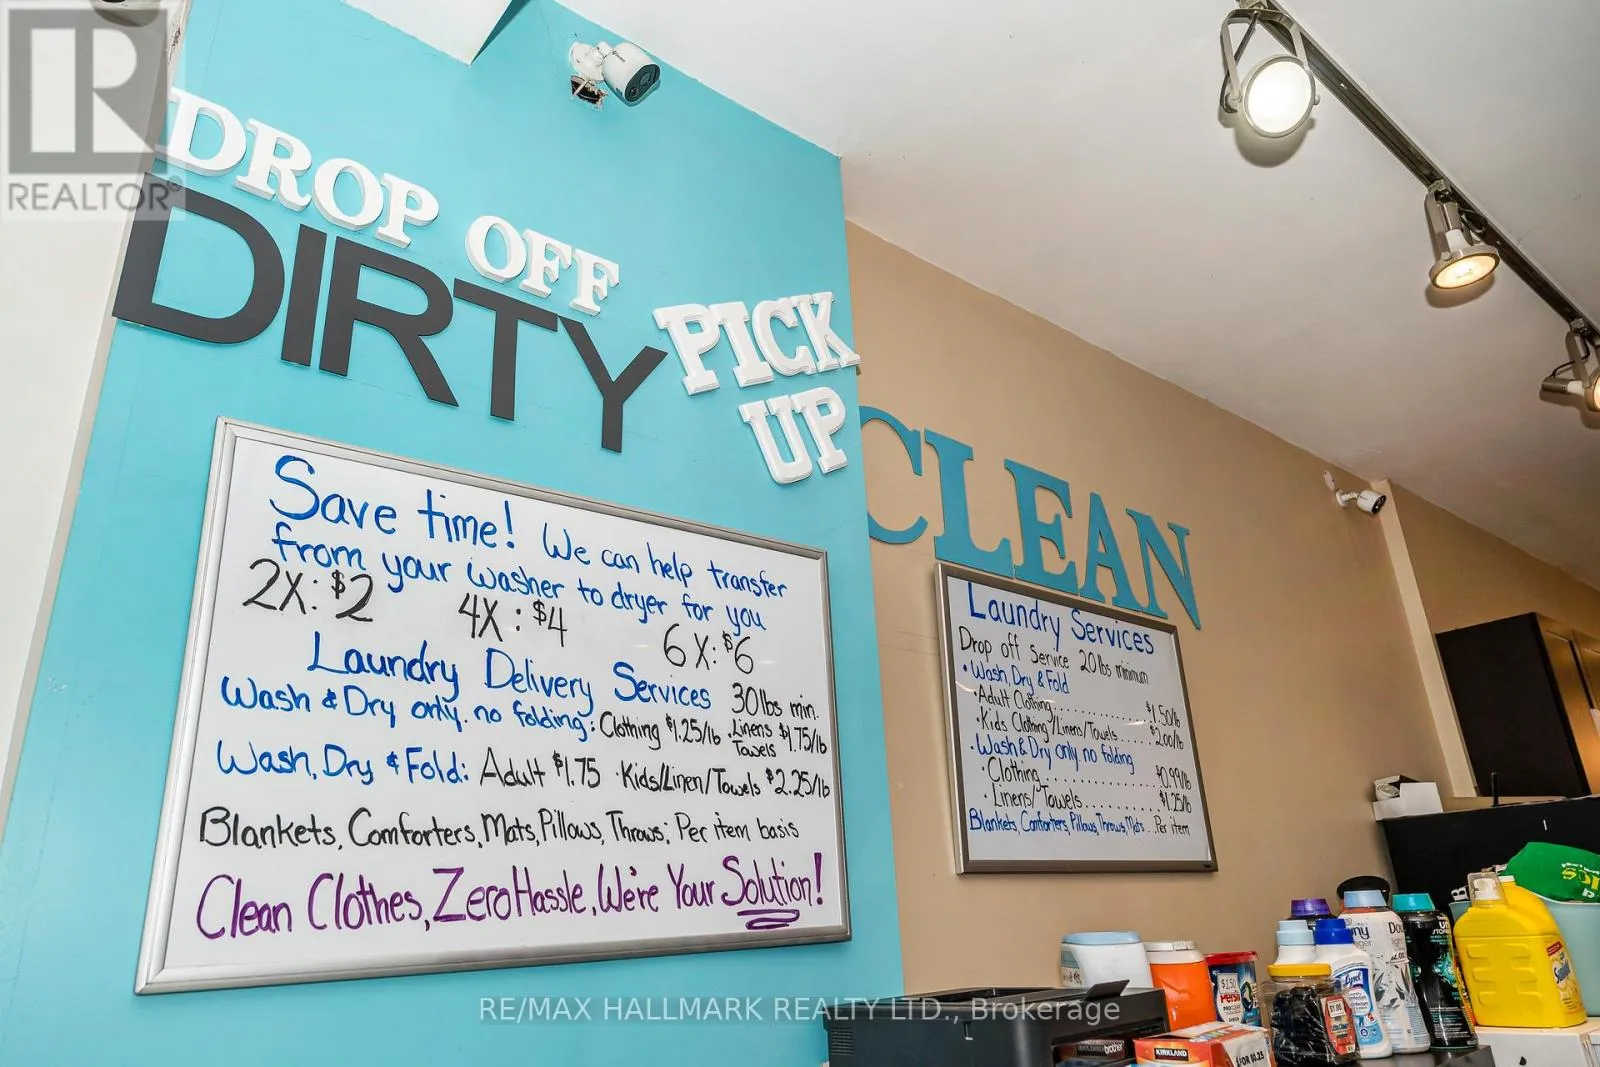 R
REALTOR®
DROP OFF
DIRTY
PICK
UP
CLEAN
Save time! We can help transfer
from your washer to dryer for you
2X: $2 4X: $4 6X: $6
Laundry Delivery Services 30 lbs min.
Wash & Dry only. no folding: Clothing $1.25/lb . Linens $1.75/lb
Towels
Wash, Dry & Fold: Adult $1.75 · Kids/Linen/Towels $2.25/lb
Blankets, Comforters, Mats, Pillows, Throws; Per item basis
Clean Clothes, Zero Hassle, We're Your Solution!
Laundry Services
Drop off Service 20 lbs minimum
• Wash, Dry & Fold
· Adult Clothing............ $1.50/lb
· Kids Clothing/Linens/Towels...... $2.00/lb
· Wash & Dry only. no folding
· Clothing................ $0.99/lb
· Linens/Towels.......... $1.25/lb
Blankets, Comforters, Pillows, Throws, Mats.. Per item
$1.50
Persil
Lysol
$1.00
brother
KIRKLAND
FOR $0.25
RE/MAX HALLMARK REALTY LTD., Brokerage